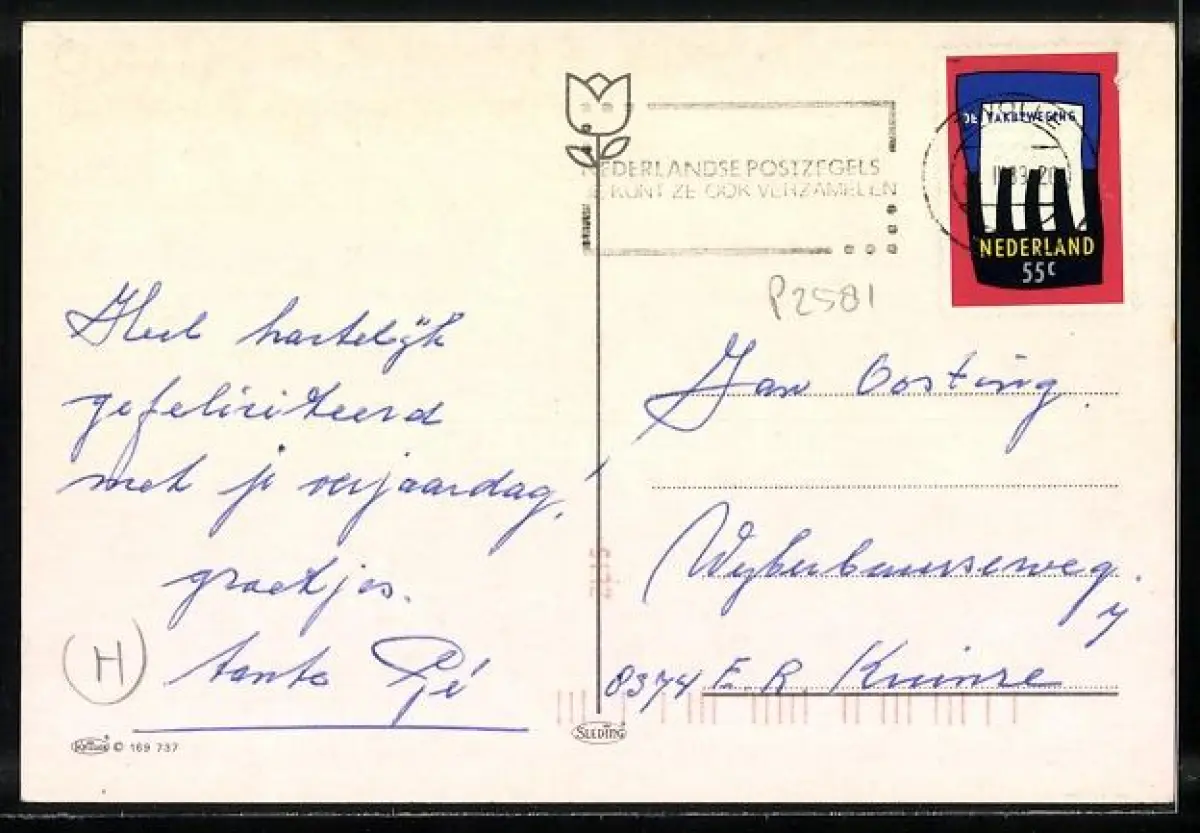 Heel hartelijk
gefeliciteerd
met je verjaardag!
groetjes.
tante Pé
H
© 169 737
SLEDING
NEDERLANDSE POSTZEGELS
JE KUNT ZE OOK VERZAMELEN
DE VAKBEWEGING
NEDERLAND
55c
P2581
Jan Oosting.
8374 E.R. Kuinre